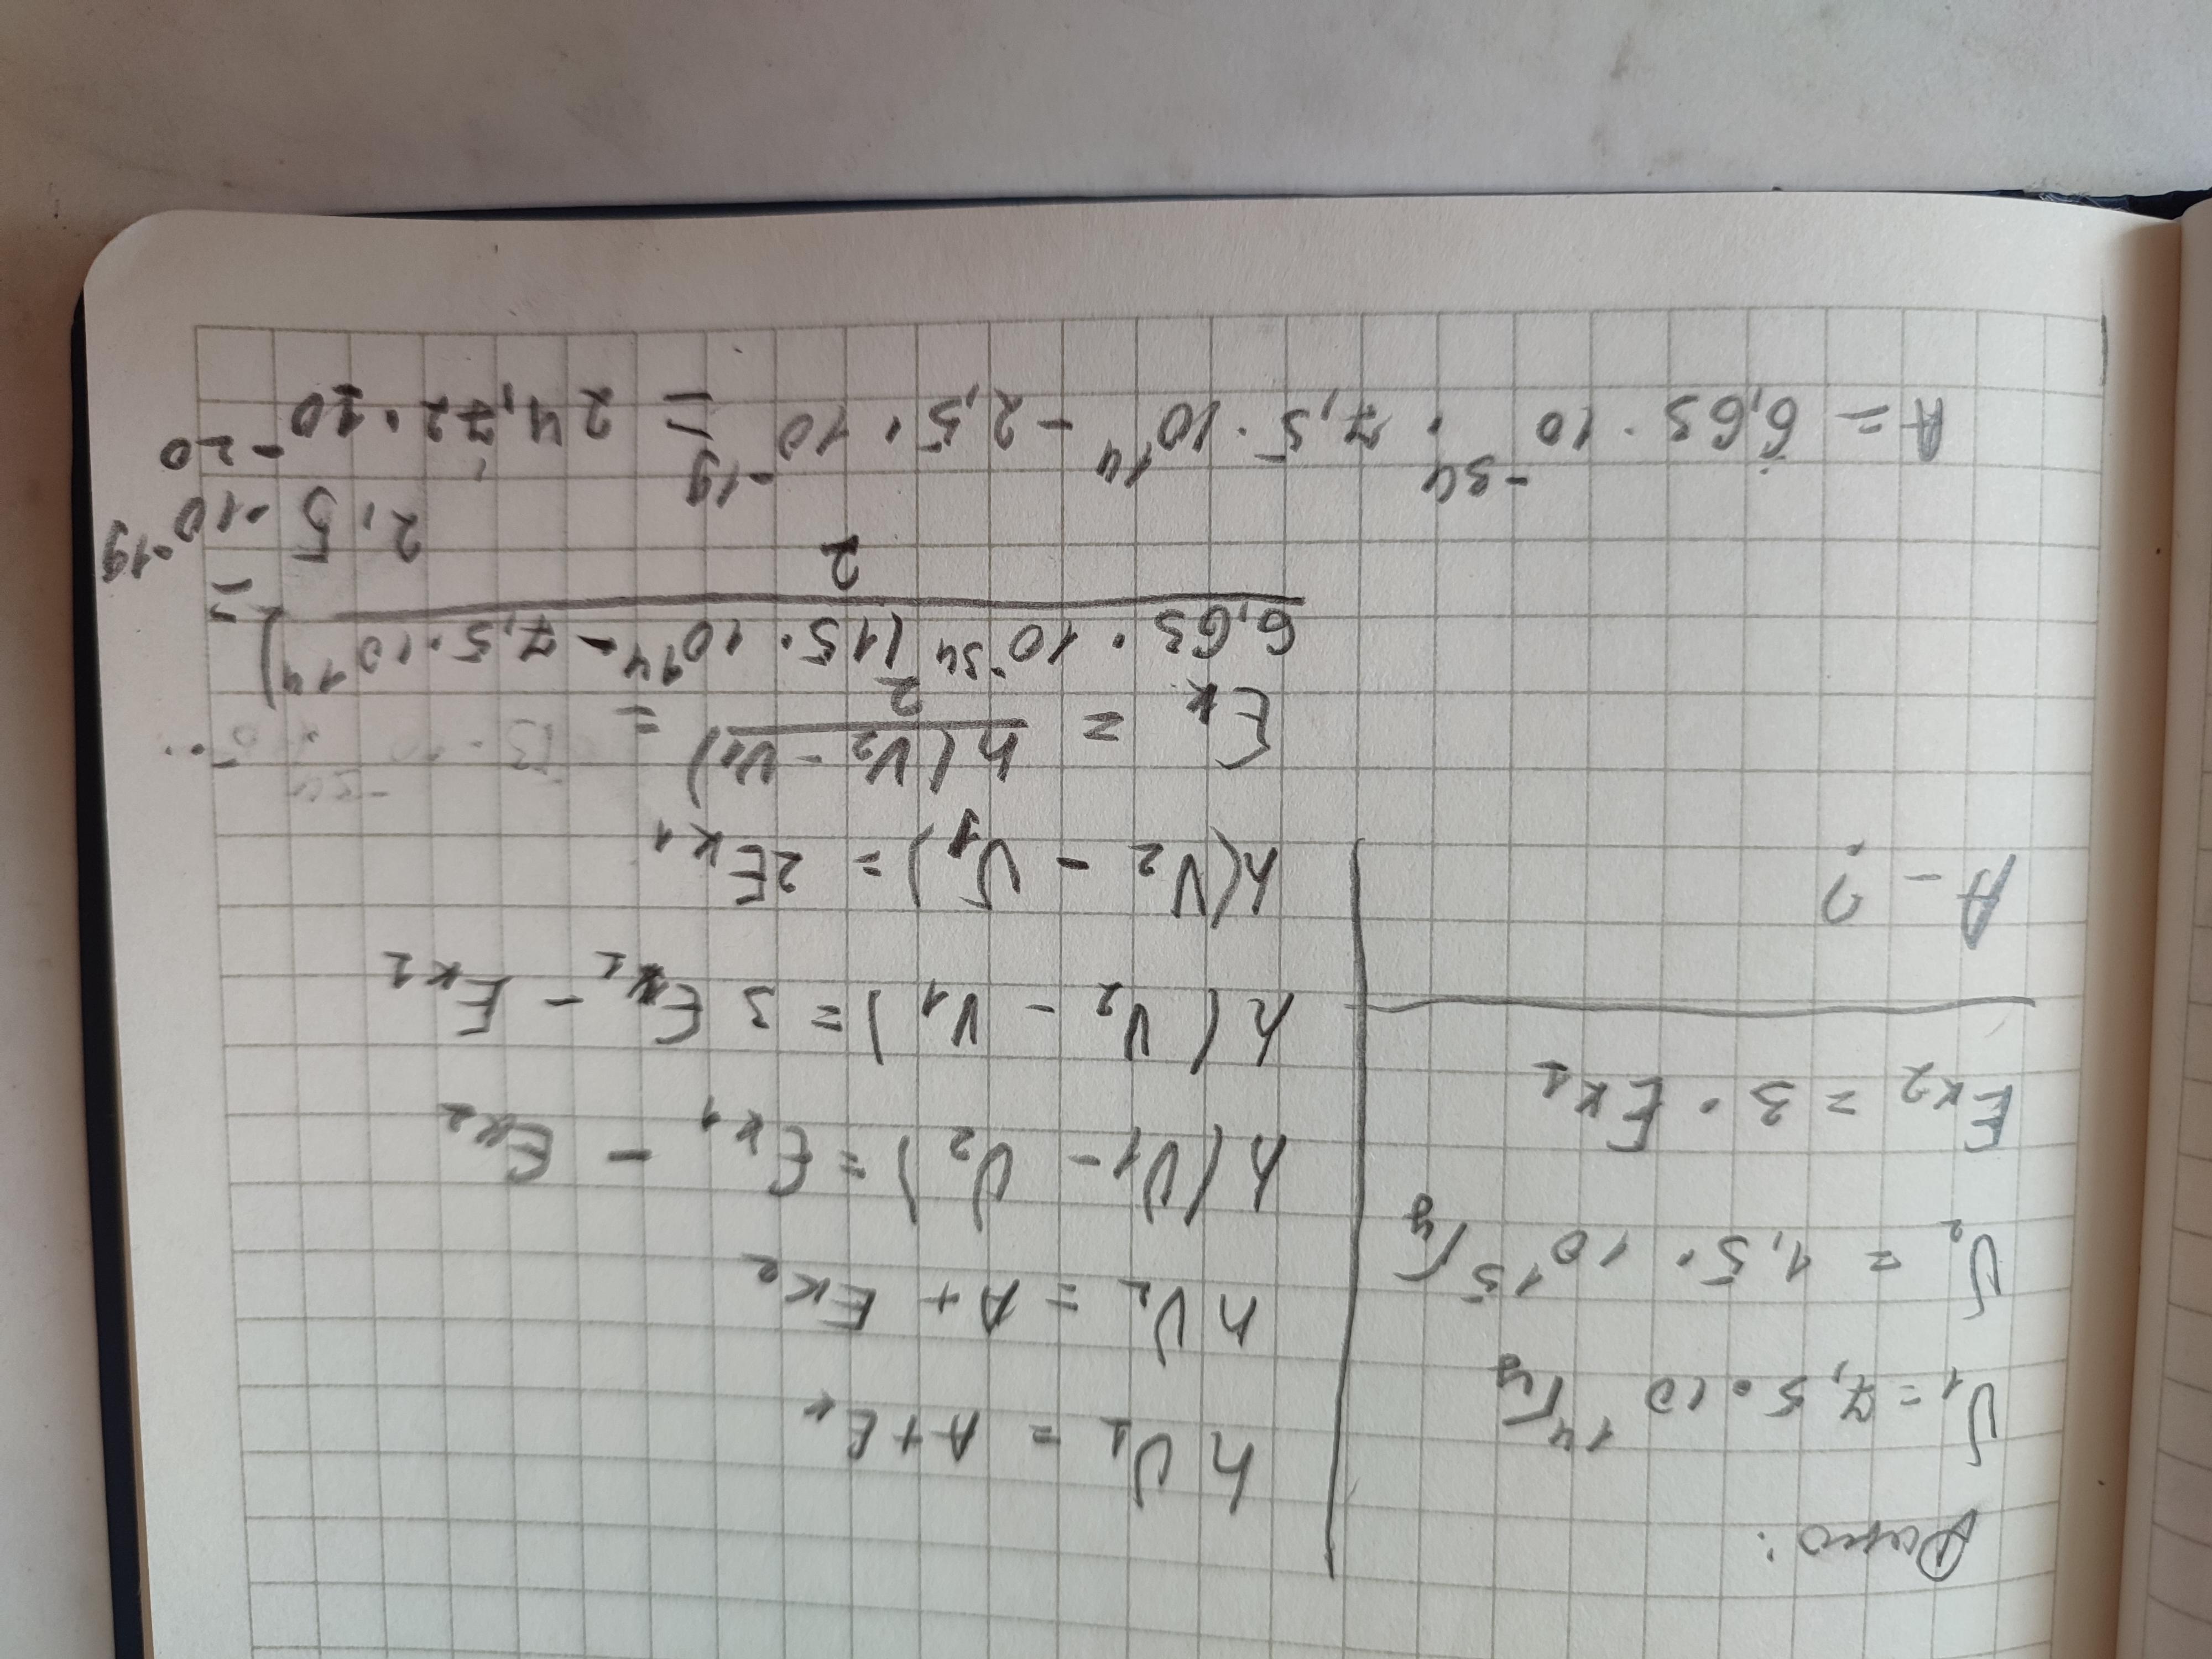 Дано:
υ₁ = 7,5 · 10¹⁴ Гц
υ₂ = 1,5 · 10¹⁵ Гц
Eк₂ = 3 · Eк₁
A - ?
hυ₁ = A + Eк
hυ₂ = A + Eк₂
h(υ₁ - υ₂) = Eк₁ - Eк₂
h(υ₂ - υ₁) = 3Eк₁ - Eк₁
h(υ₂ - υ₁) = 2Eк₁
Eк = h(υ₂ - υ₁) / 2 =
6,63 · 10⁻³⁴ (15 · 10¹⁴ - 7,5 · 10¹⁴) / 2 = 2,5 · 10⁻¹⁹
A = 6,63 · 10⁻³⁴ · 7,5 · 10¹⁴ - 2,5 · 10⁻¹⁹ = 24,72 · 10⁻²⁰